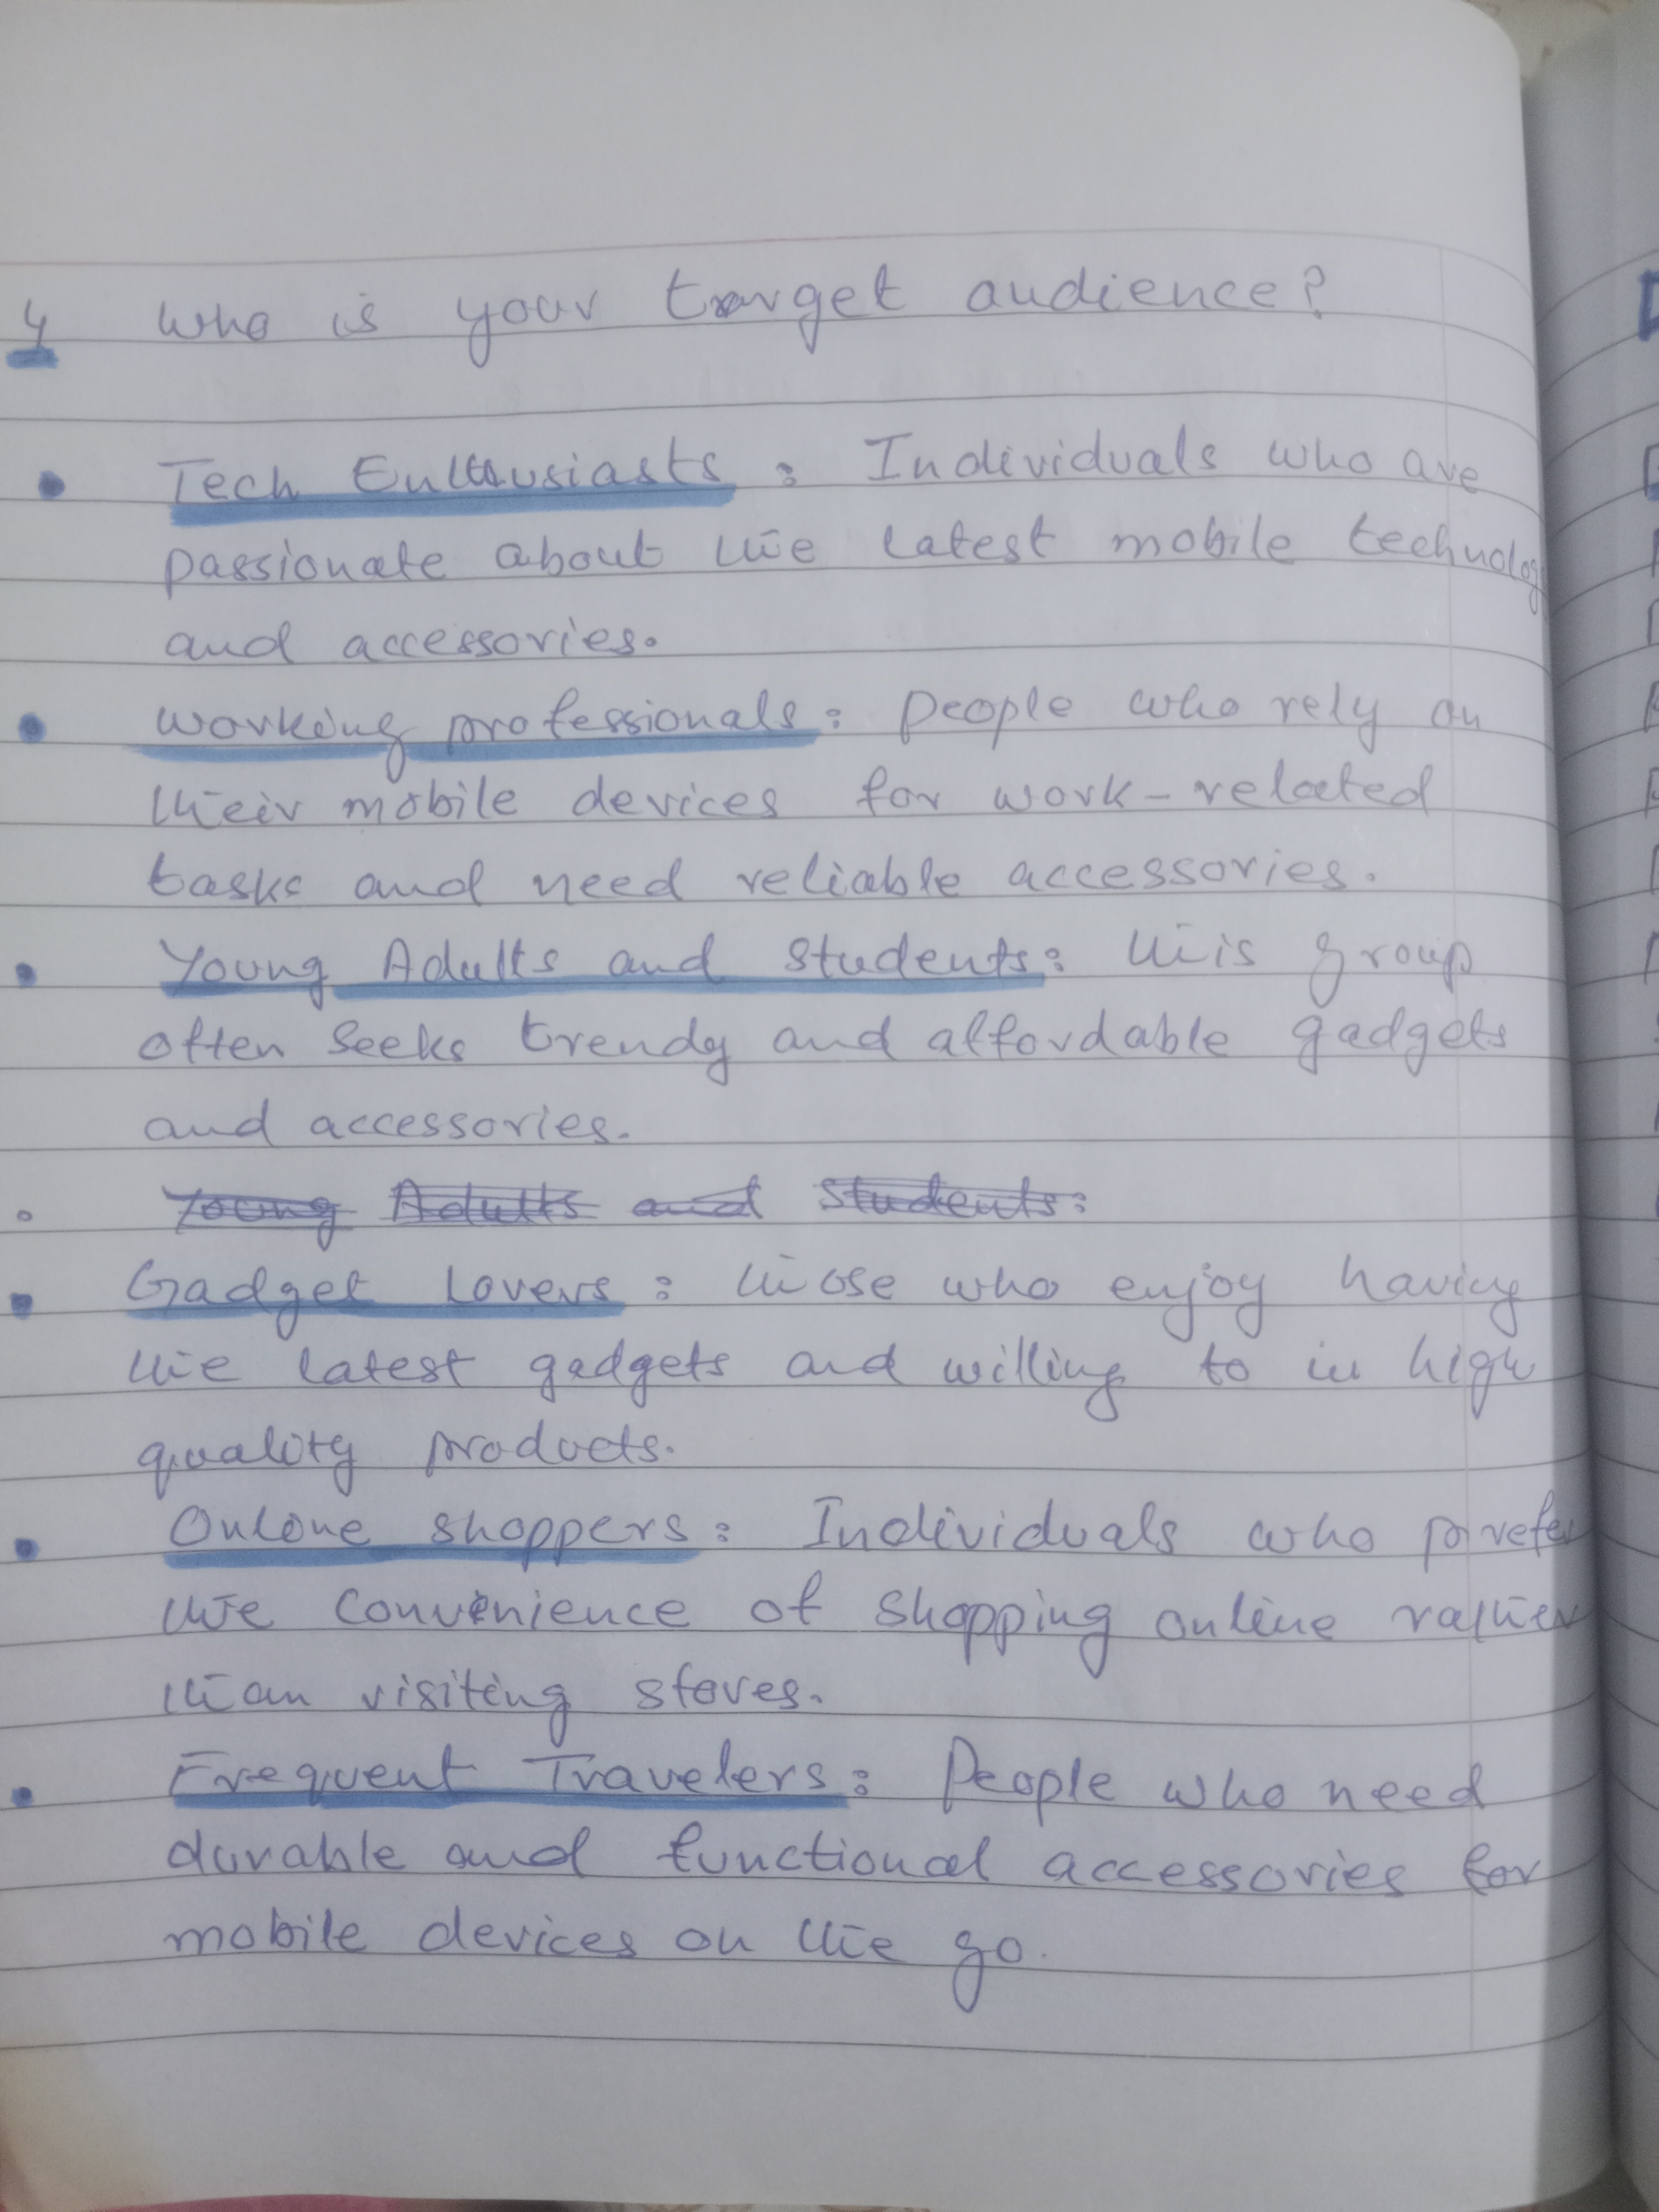 4 Who is your target audience?
• Tech Enthusiasts : Individuals who are
passionate about the latest mobile technolog
and accessories.
• Working professionals : People who rely on
their mobile devices for work-related
tasks and need reliable accessories.
• Young Adults and Students : this group
often seeks trendy and affordable gadgets
and accessories.
• Young Adults and Students :
• Gadget Lovers : those who enjoy having
the latest gadgets and willing to in high
quality products.
• Online shoppers : Individuals who prefer
the convenience of shopping online rather
than visiting stores.
• Frequent Travelers : People who need
durable and functional accessories for
mobile devices on the go.